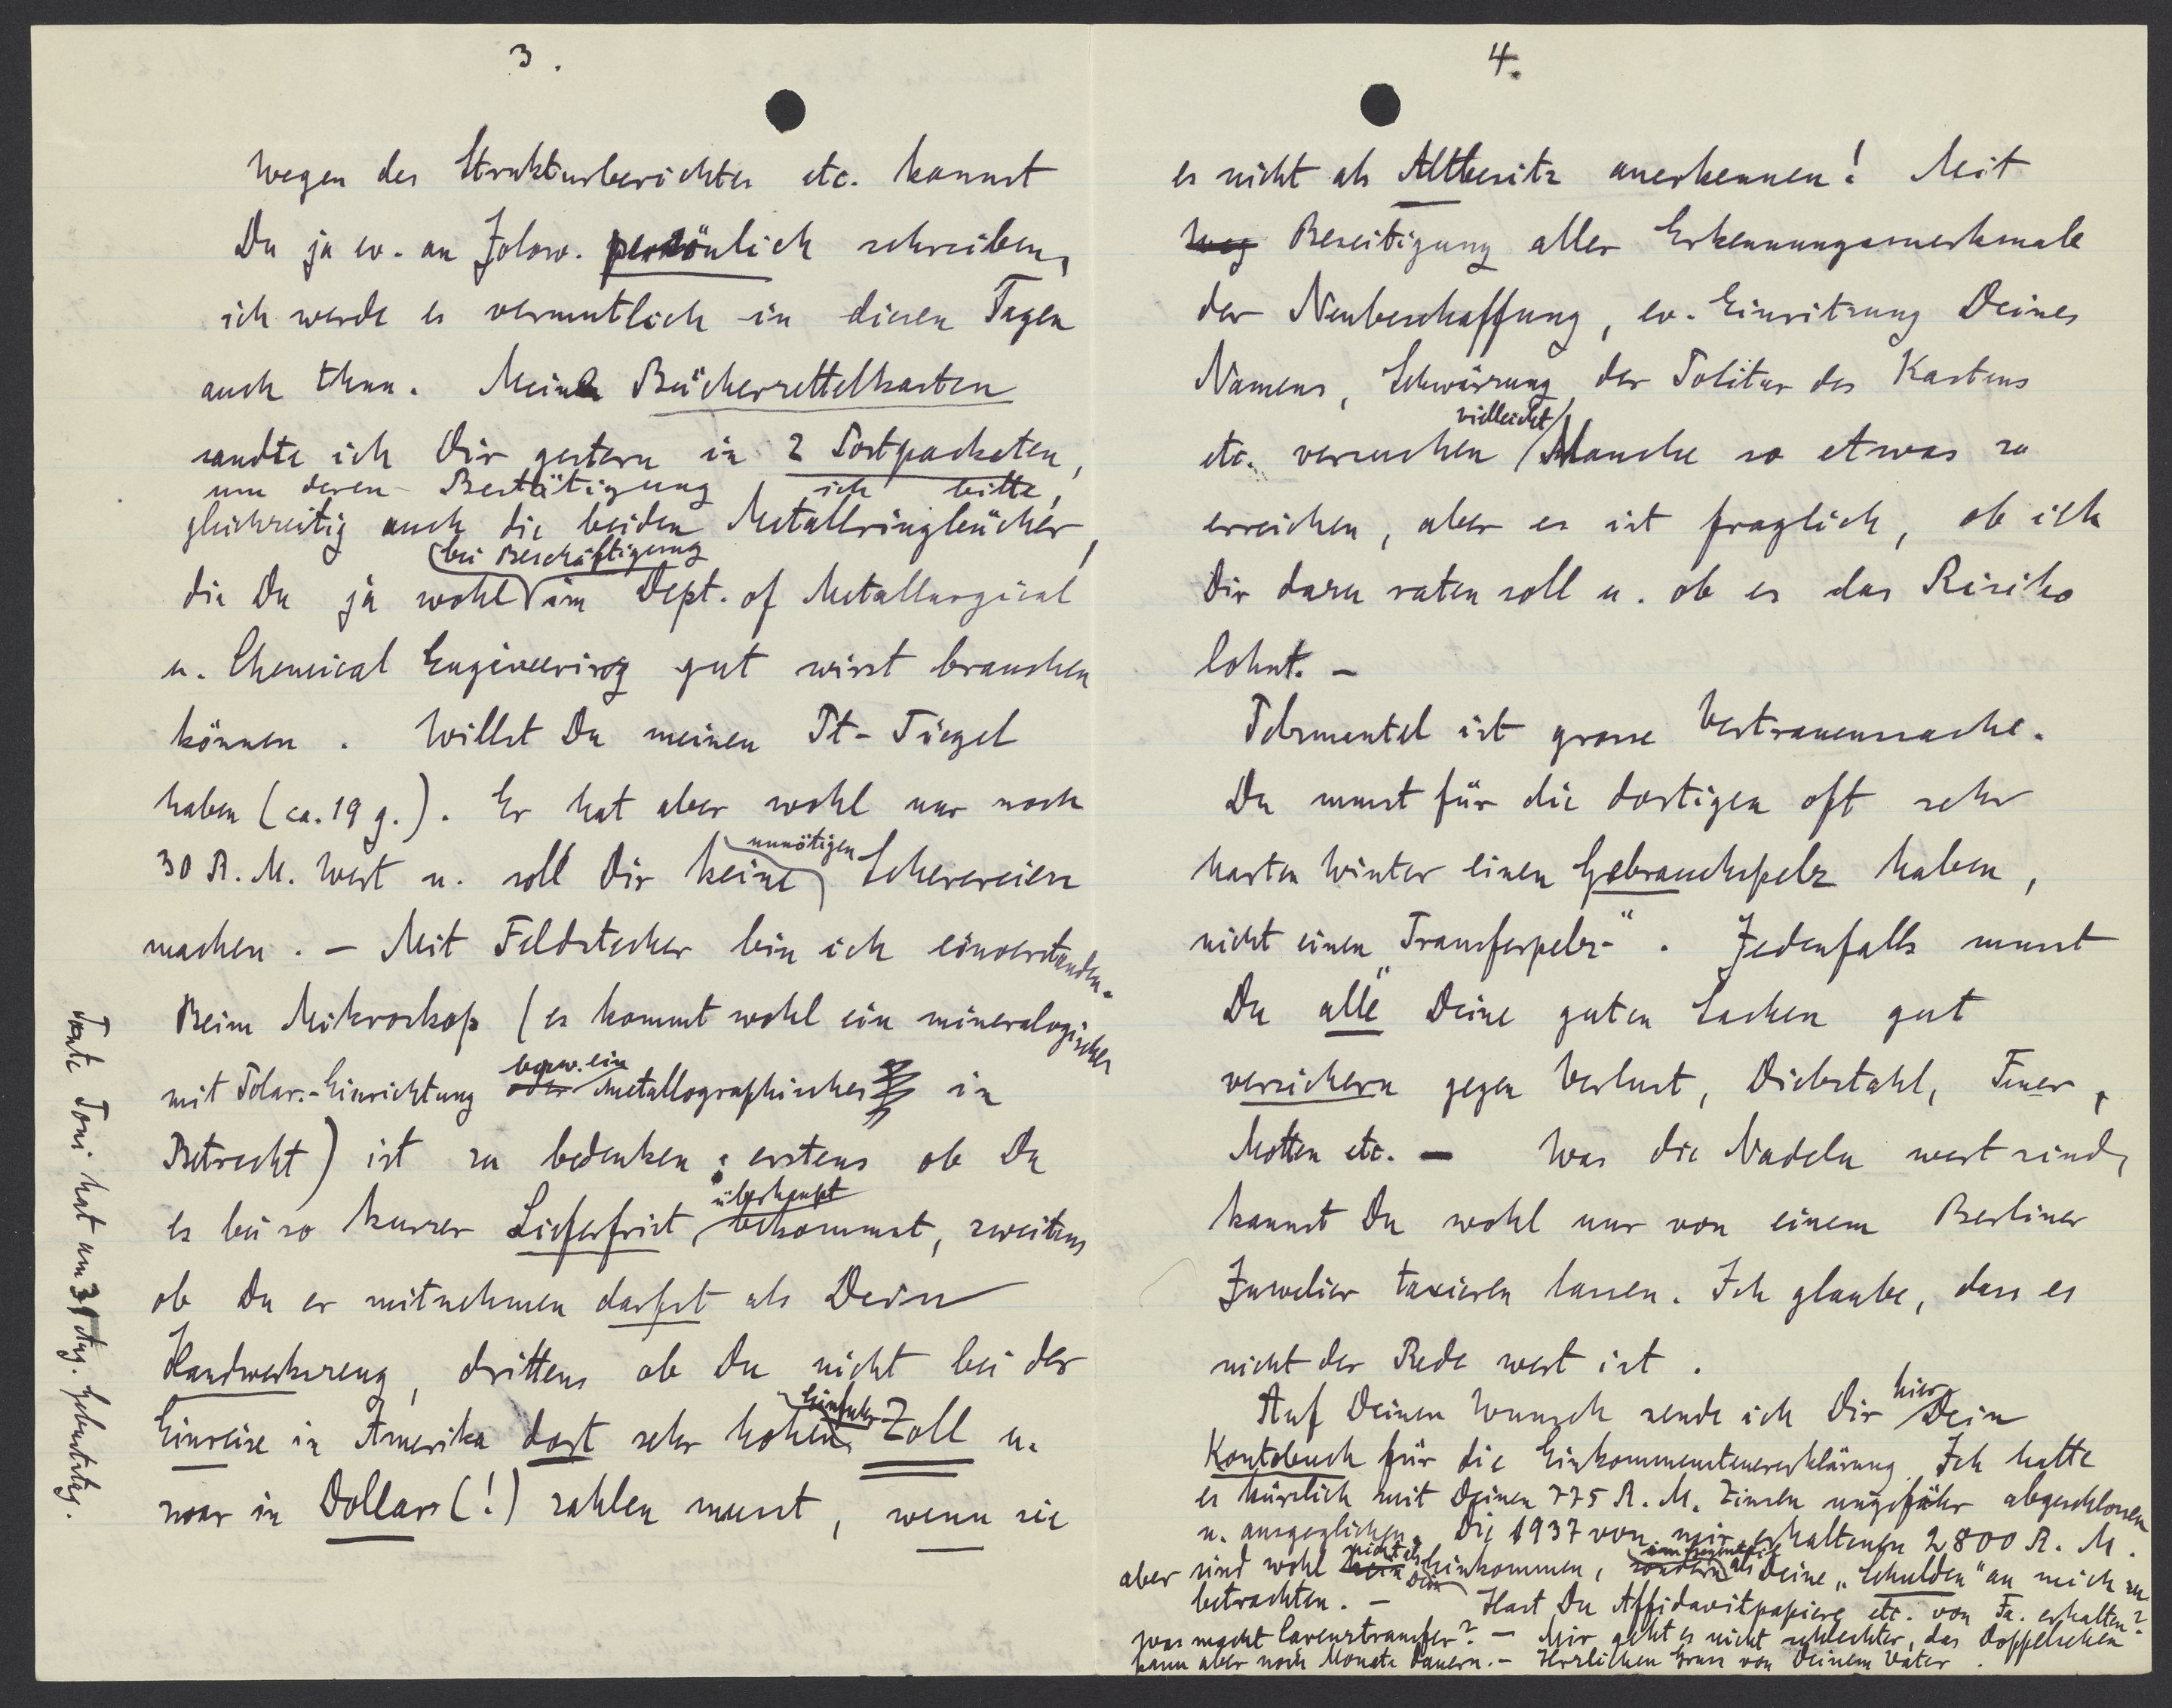 3.
Wegen des Strukturberichtes etc. kannst
Du ja ev. an Jolow. persönlich schreiben,
ich werde es vermutlich in diesen Tagen
auch thun. Meinen Bücherzettelkasten
sandte ich Dir gestern in 2 Postpacketen,
um deren Bestätigung ich bitte,
gleichzeitig auch die beiden Metallringbücher,
die Du ja wohl bei Beschäftigung im Dept. of Metallurgical
u. Chemical Engineering gut wirst brauchen
können. Willst Du meinen Pt-Tiegel
haben (ca. 19 g.). Er hat aber wohl nur noch
30 R. M. Wert u. soll Dir keine unnötigen Scherereien
machen. – Mit Feldstecher bin ich einverstanden.
Beim Mikroskop (es kommt wohl ein mineralogisches
mit Polar.-Einrichtung oder bezw. ein metallographisches in
Betracht) ist zu bedenken: erstens ob Du
es bei so kurzer Lieferfrist überhaupt bekommst, zweitens
ob Du es mitnehmen darfst als Dein
Handwerkszeug, drittens ob Du nicht bei der
Einreise in Amerika dort sehr hohen Einfuhr-Zoll u.
zwar in Dollars (!) zahlen musst, wenn sie
Tante Toni hat am 31 Aug. Geburtstag.
4.
es nicht als Altbesitz anerkennen! Mit
Weg Beseitigung aller Erkennungsmerkmale
der Neubeschaffung, ev. Einritzung Deines
Namens, Schwärzung der Politur des Kastens
etc. versuchen vielleicht Manche so etwas zu
erreichen, aber es ist fraglich, ob ich
Dir dazu raten soll u. ob es das Risiko
lohnt. –
Pelzmantel ist grosse Vertrauenssache.
Du musst für die dortigen oft sehr
harten Winter einen Gebrauchspelz haben,
nicht einen "Transferpelz-". Jedenfalls musst
Du "alle" Deine guten Sachen gut
versichern gegen Verlust, Diebstahl, Feuer,
Motten etc. – Was die Nadeln wert sind,
kannst Du wohl nur von einem Berliner
Juwelier taxieren lassen. Ich glaube, dass es
nicht der Rede wert ist.
Auf Deinen Wunsch sende ich Dir hier Dein
Kontobuch für die Einkommensteuererklärung. Ich hatte
es kürzlich mit Deinen 775 R. M. Zinsen ungefähr abgeschlossen
u. ausgeglichen. Die 1937 von mir erhaltenen 2800 R. M.
aber sind wohl nicht als Dein Einkommen, sondern im Gegenteil als Deine „Schulden" an mich zu
betrachten. – Hast Du Affidavitpapiere etc. von Fa. erhalten?
Was macht Lavenztransfer? – Mir geht es nicht schlechter, das Doppelsehen
kann aber noch Monate dauern. – Herzlichen Gruss von Deinem Vater.